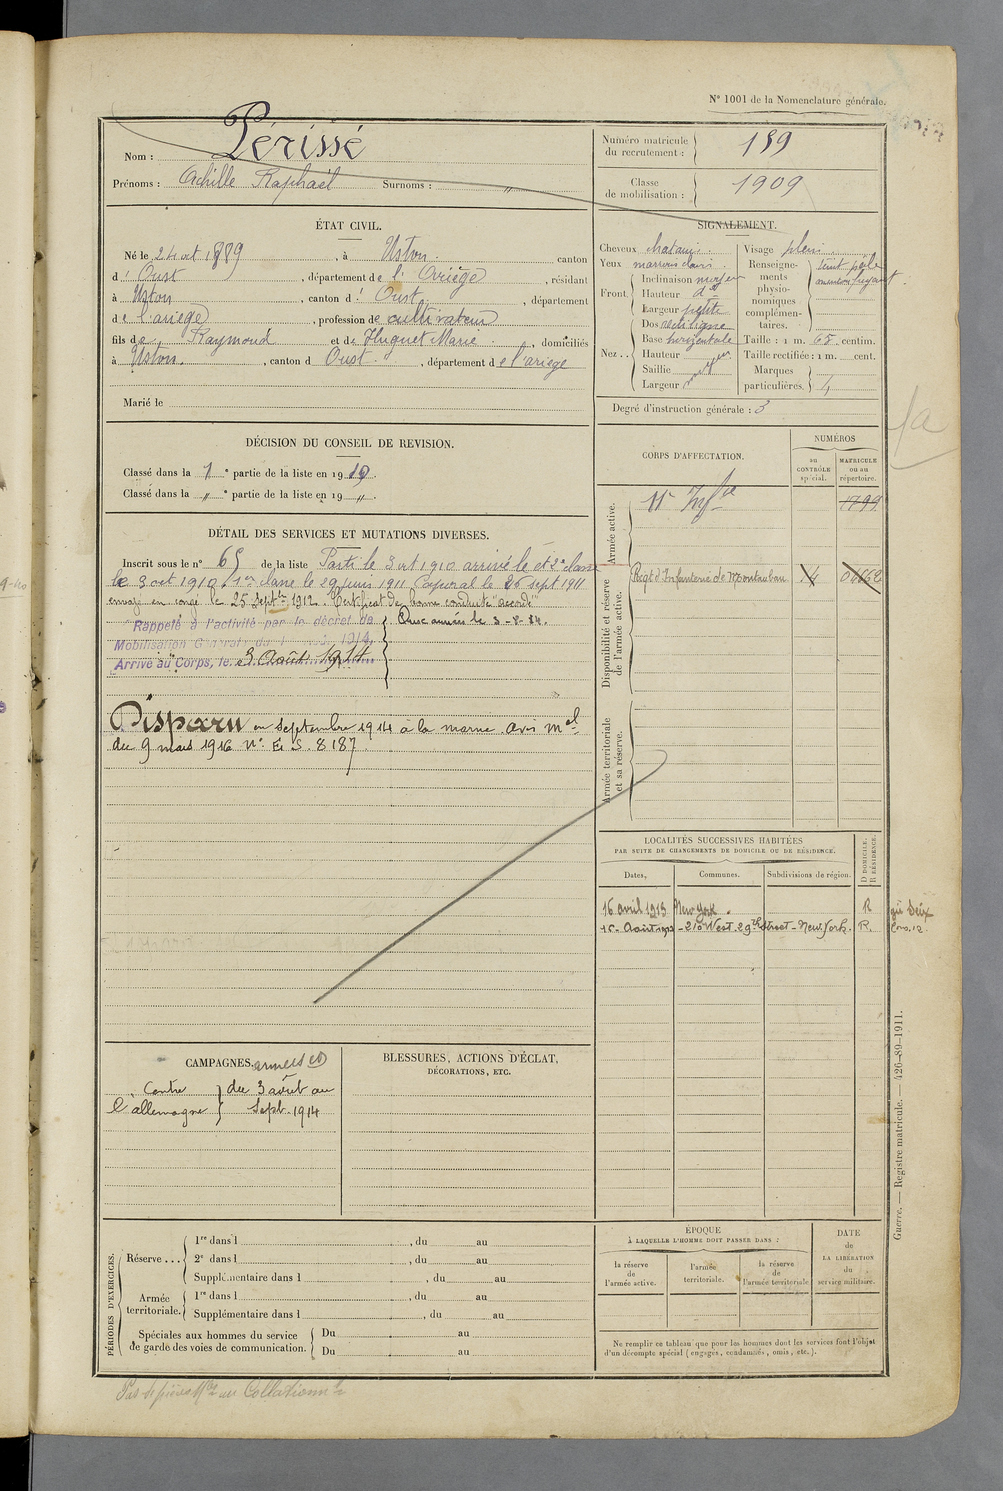 N° 1001 de la Nomenclature générale.
Nom : Périssé
Prénoms : Achille Raphaël Surnoms : "
Numéro matricule du recrutement : 159
Classe de mobilisation : 1909
ÉTAT CIVIL.
Né le 24 oct 1889, à Ustou canton
d' Oust, département de l' Ariège, résidant
à Ustou, canton d' Oust, département
de l'ariège, profession de cultivateur
fils de Raymond et de Huguet Marie, domiciliés
à Ustou, canton d Oust, département de l'ariege
Marié le
SIGNALEMENT.
Cheveux chatain
Yeux marrons clairs
Front Inclinaison moyen
Hauteur d°
Largeur petite
Nez Dos rectiligne
Base horizontale
Hauteur
Saillie moyen
Largeur
Visage plein
Renseignements physionomiques complémentaires. teint pâle
menton fuyant
Taille : 1 m. 65 centim.
Taille rectifiée : 1 m. cent.
Marques particulières.
Degré d'instruction générale : 3
DÉCISION DU CONSEIL DE REVISION.
Classé dans la 1re partie de la liste en 1910.
Classé dans la " e partie de la liste en 19 ".
CORPS D'AFFECTATION.
NUMÉROS
au CONTRÔLE spécial.
MATRICULE ou au répertoire.
Armée active.
11e Infie
1799
Disponibilité et réserve de l'armée active.
Regt d'Infanterie de Montauban
Armée territoriale et sa réserve.
DÉTAIL DES SERVICES ET MUTATIONS DIVERSES.
Inscrit sous le n° 65 de la liste Parti le 3 oct 1910 arrivé le et 2e classe
le 3 oct 1910, 1er classe le 29 juin 1911 Caporal le 26 sept 1911
envoyé en congé le 25 Septbre 1912 Certificat de bonne conduite "accordé"
Rappelé à l'activité par le décret de
Mobilisation Générale du 1 août 1914.
Arrivé au Corps, le 3 Août 1914
Disparu en Septembre 1914 à la marne avis mel
du 9 mars 1916 N° E. S. 8187
LOCALITÉS SUCCESSIVES HABITÉES
PAR SUITE DE CHANGEMENTS DE DOMICILE OU DE RÉSIDENCE.
Dates, Communes. Subdivisions de région. D DOMICILE. R RÉSIDENCE.
16 avril 1913 New York R
15 Août 1913 - 210 West. 29th Street - New York. R.
CAMPAGNES.
Contre l'allemagne du 3 août au Sept. 1914
BLESSURES, ACTIONS D'ÉCLAT,
DÉCORATIONS, ETC.
PÉRIODES D'EXERCICES.
Réserve... 1re dans l , du au
2e dans l , du au
Supplémentaire dans l , du au
Armée territoriale. 1re dans l , du au
Supplémentaire dans l , du au
Spéciales aux hommes du service de garde des voies de communication. Du au
Du au
ÉPOQUE
À LAQUELLE L'HOMME DOIT PASSER DANS :
la réserve de l'armée active.
l'armée territoriale.
la réserve de l'armée territoriale
DATE de LA LIBÉRATION du service militaire.
Ne remplir ce tableau que pour les hommes dont les services font l'objet
d'un décompte spécial (engagés, condamnés, omis, etc.).
Guerre. — Registre matricule. — 426-89-1911.